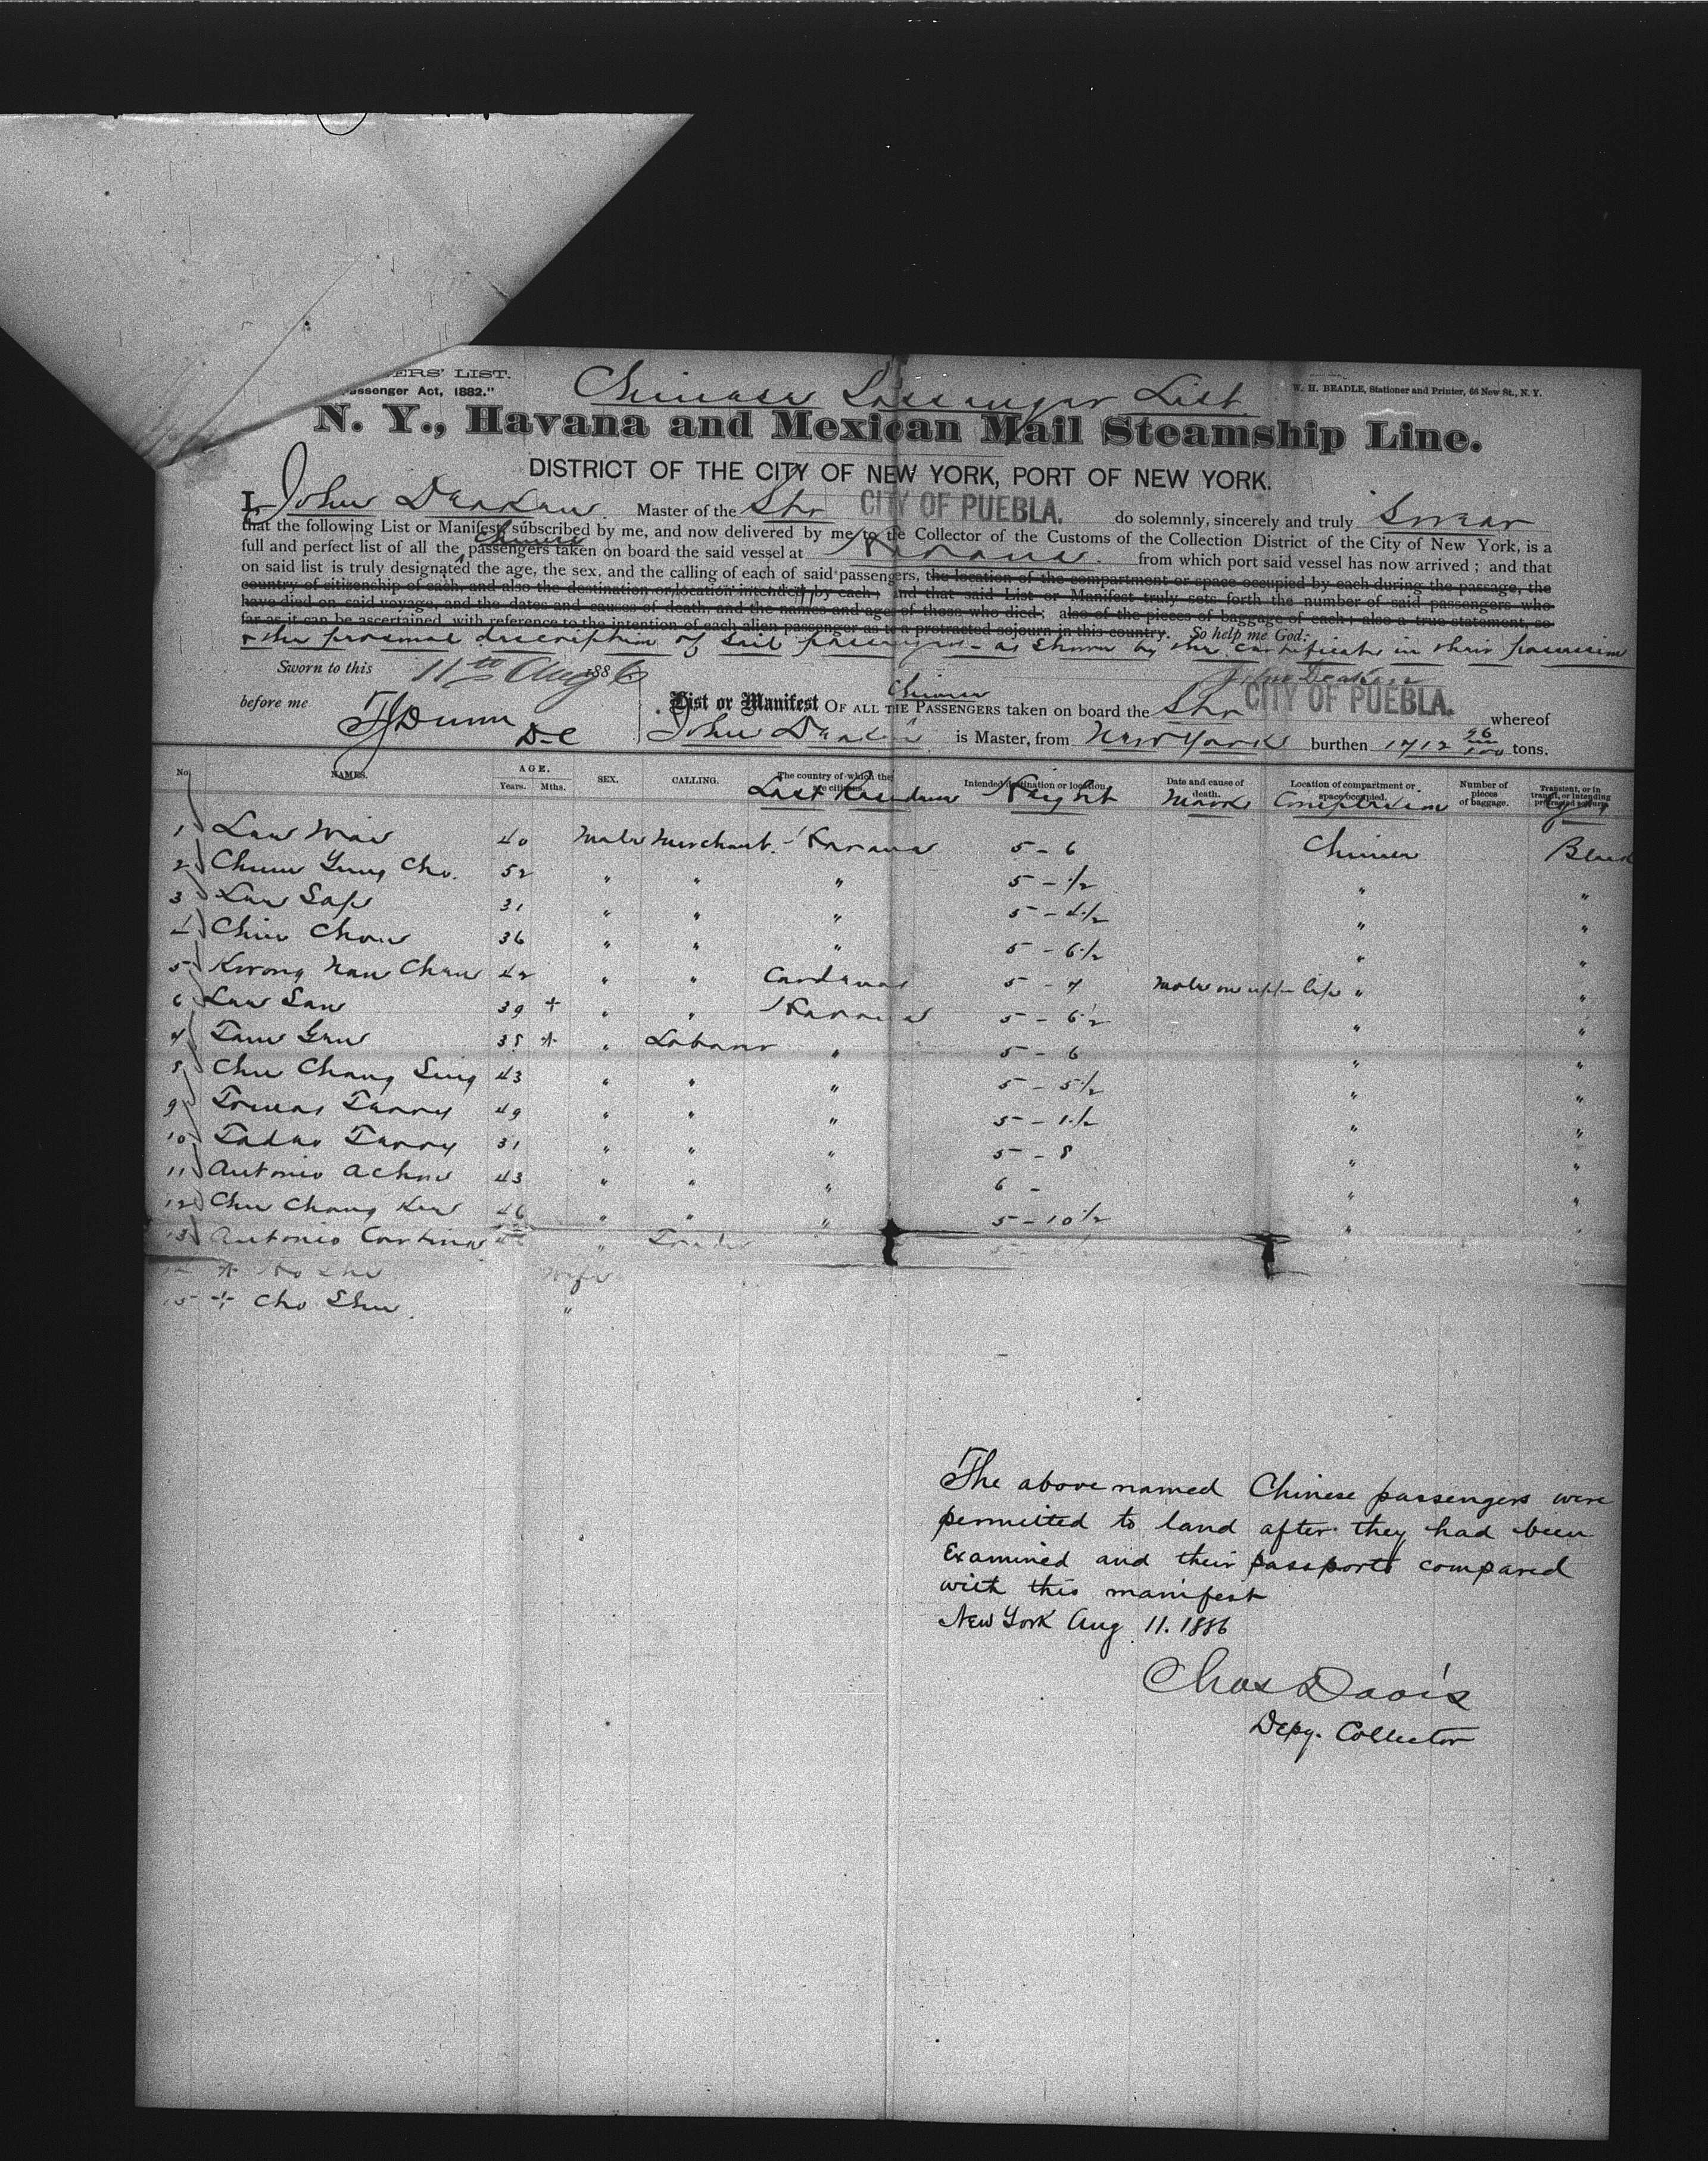 ERS' LIST.
assenger Act, 1882."
Chinese Passenger List.
W. H. BEADLE, Stationer and Printer, 66 New St., N. Y.
N. Y., Havana and Mexican Mail Steamship Line.
DISTRICT OF THE CITY OF NEW YORK, PORT OF NEW YORK.
I, John Deaken Master of the Str CITY OF PUEBLA. do solemnly, sincerely and truly Swear
that the following List or Manifest, subscribed by me, and now delivered by me to the Collector of the Customs of the Collection District of the City of New York, is a
full and perfect list of all the Chinese passengers taken on board the said vessel at Havana. from which port said vessel has now arrived; and that
on said list is truly designated the age, the sex, and the calling of each of said passengers, the location of the compartment or space occupied by each during the passage, the
country of citizenship of each, and also the destination or location intended by each; and that said List or Manifest truly sets forth the number of said passengers who
have died on said voyage, and the dates and causes of death, and the names and ages of those who died; also of the pieces of baggage of each; also a true statement, so
far as it can be ascertained, with reference to the intention of each alien passenger as to a protracted sojourn in this country. So help me God:
& the personal description of said passengers as shown by the certificate in their possession
Sworn to this 11th Aug 1886 John Deaken
before me
List or Manifest OF ALL THE Chinese PASSENGERS taken on board the Str CITY OF PUEBLA. whereof
John Deaken is Master, from New York burthen 1712 tons.
No. NAMES. AGE. Years. Mths. SEX. CALLING. The country of which they are citizens. Intended destination or location. Date and cause of death. Location of compartment or space occupied. Number of pieces of baggage. Transient, or in transit, or intending protracted sojourn.
Last Residence Height Marks Complexion Eyes
1 Lau Wai 40 Male Merchant. Havana 5 - 6 Chinese Black
2 Chum Yung Cho. 52 " " " 5 - ½ " "
3 Lau Sap 31 " " " 5 - 4½ " "
4 Chin Chow 36 " " " 5 - 6½ " "
5 Kwong Nam Chun 42 " " Cardenas 5 - 7 Mole on upper lip " "
6 Lau San 39 + " " Havana 5 - 6½ " "
7 Tam Gun 38 * " Laborer " 5 - 6 " "
8 Chu Chang Sing 43 " " " 5 - 5½ " "
9 Tomas Tarry 49 " " " 5 - 1½ " "
10 Tadeo Tarry 31 " " " 5 - 8 " "
11 Antonio Achon 43 " " " 6 - " "
12 Chu Chang Kew 46 " " " 5 - 10½ " "
13 Antonio Cortina " Trader
14 * Ho She Wife
15 + Cho Shee "
The above named Chinese passengers were
permitted to land after they had been
Examined and their passports compared
with this manifest
New York Aug 11. 1886
Chas Davis
Depy. Collector